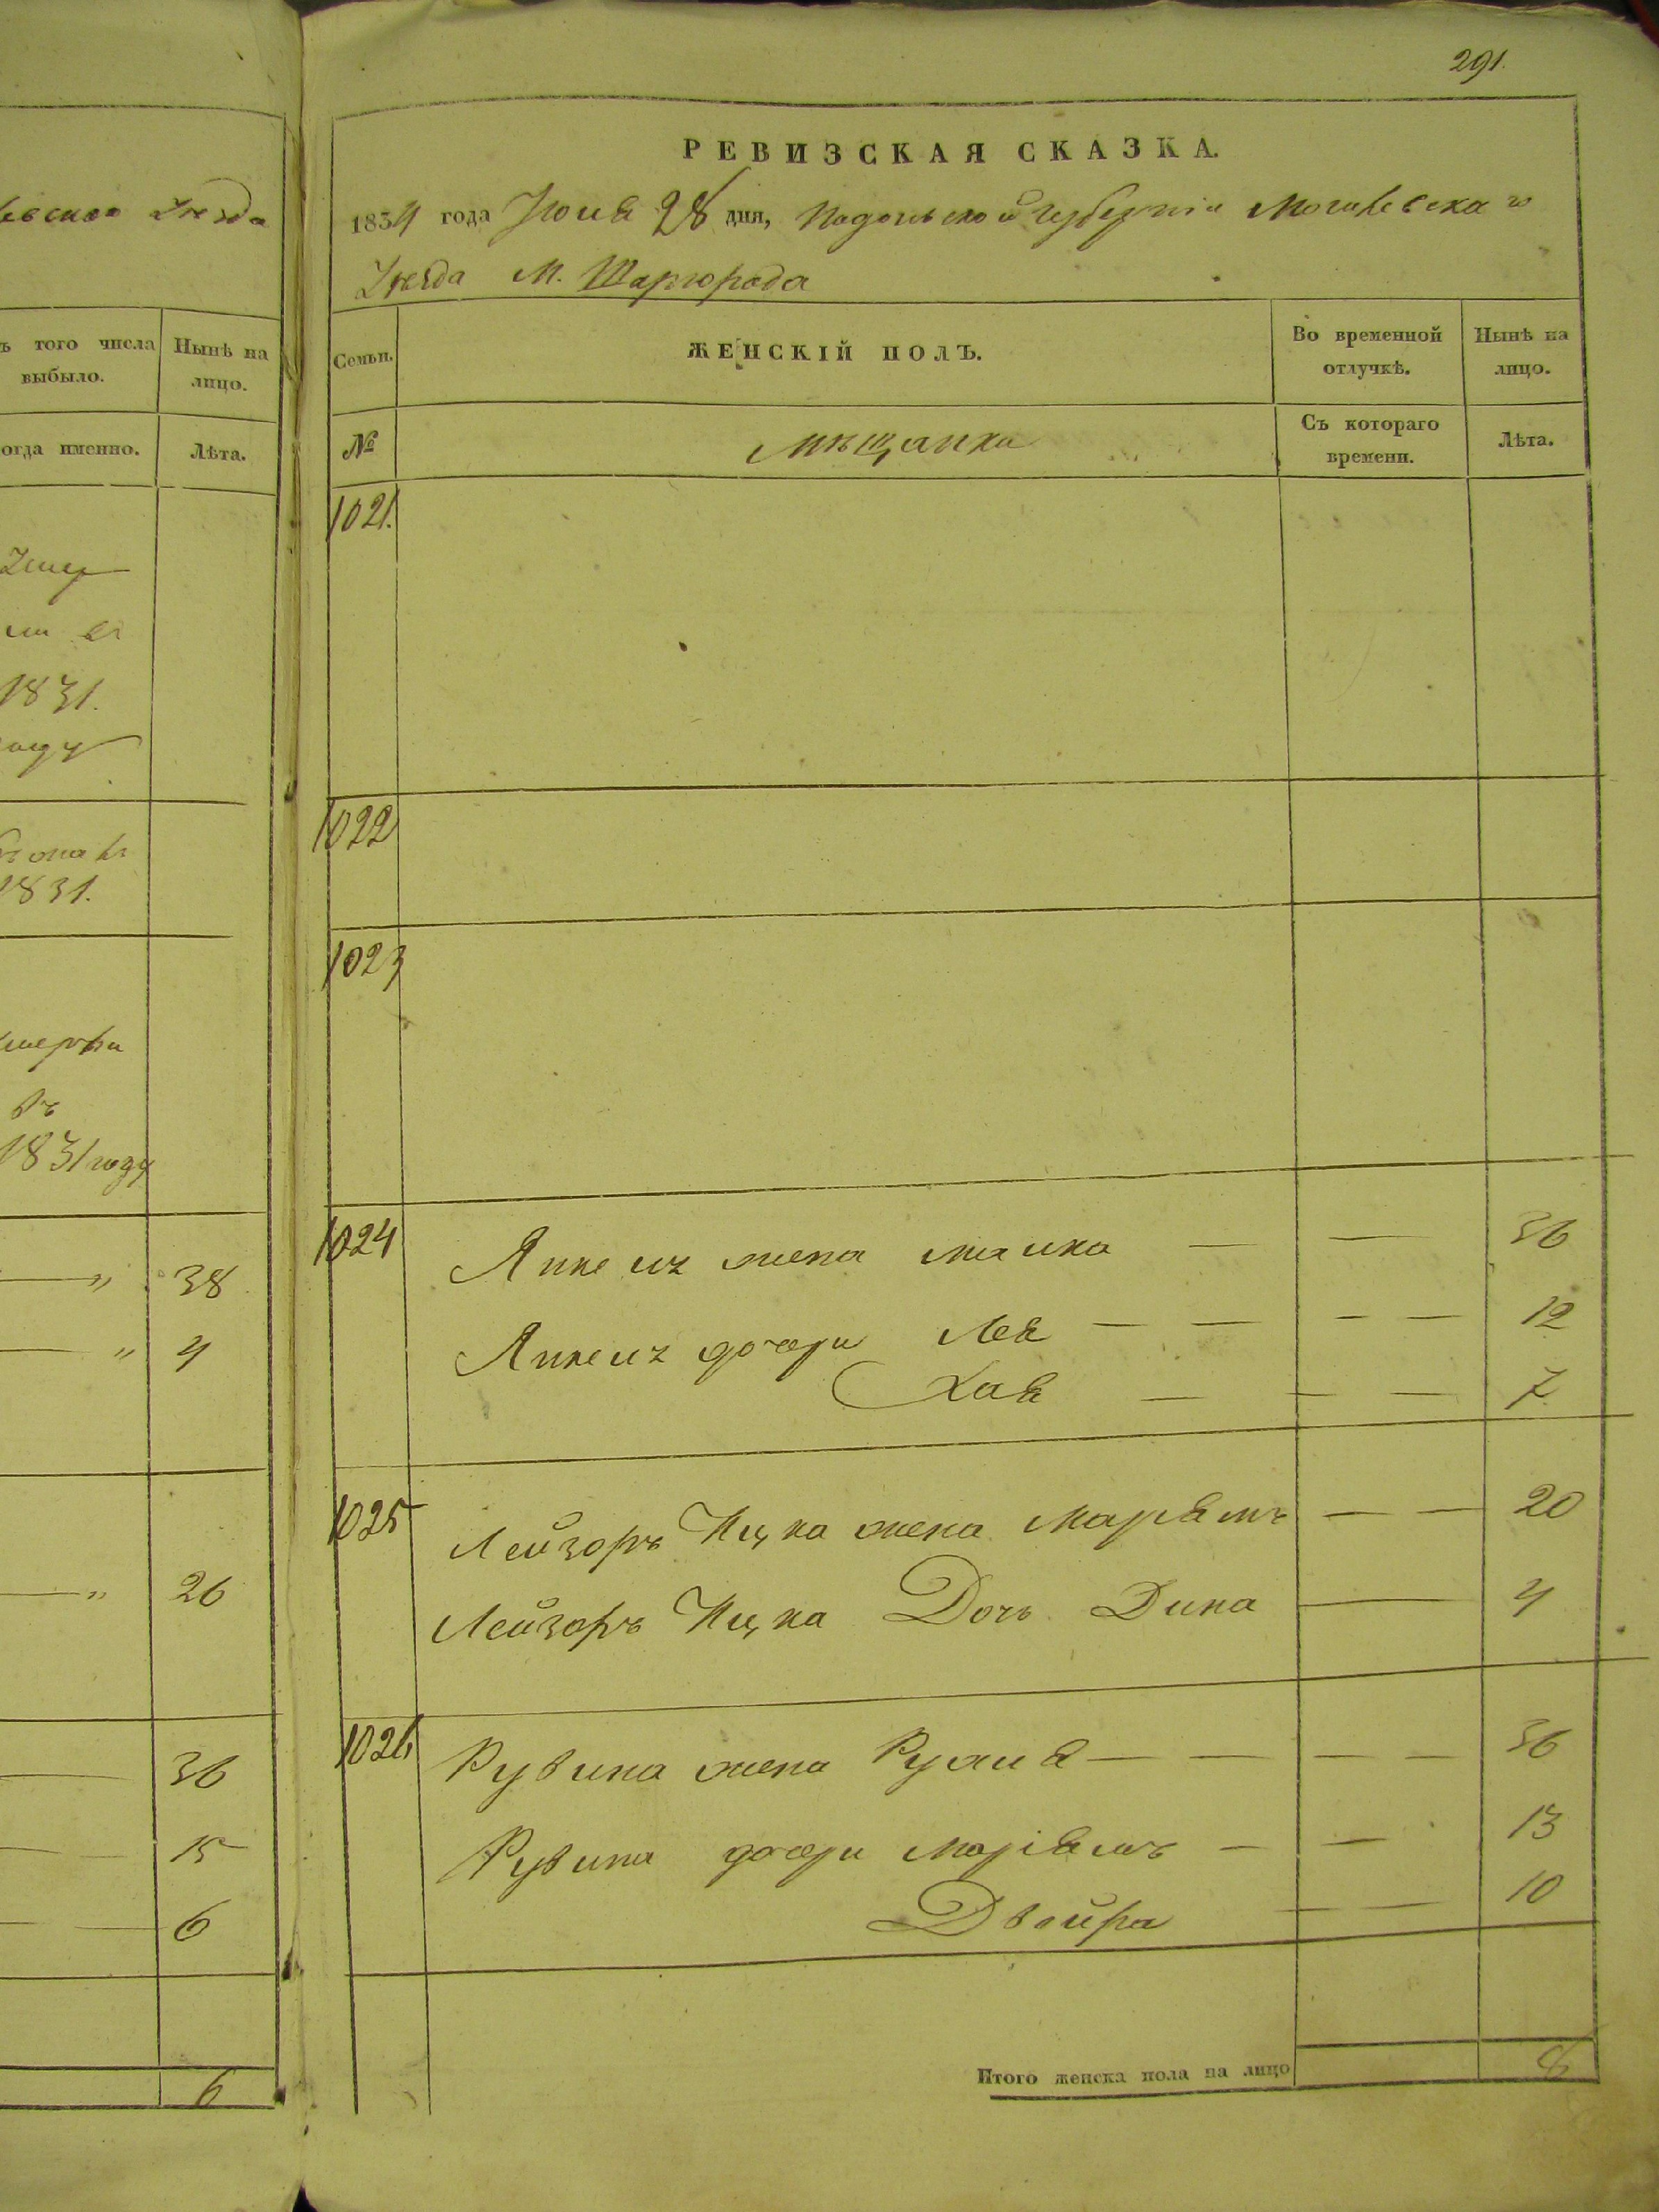 евскаго Уезда
ъ того числа
выбыло.
Нынѣ на
лицо.
огда именно.
Лѣта.
1831.
1831.
въ
1831 году
— " 38
— " 4
— " 26
— 36
— 15
— 6
6
291.
РЕВИЗСКАЯ СКАЗКА.
1834 года Июня 28 дня, Подольской губерніи Могилевскаго
Уезда М. Шаргорода
Семьи.
ЖЕНСКІЙ ПОЛЪ.
Во временной
отлучкѣ.
Нынѣ на
лицо.
№
мѣщанки
Съ котораго
времени.
Лѣта.
1021.
1022
1023
1024 жена — — 36
дочери Лея — — — — 12
Хая — — — 7
1025 Лейзоръ Ицка жена Маріямъ — — 20
Лейзоръ Ицка Дочь Дина — 4
1026 Рувина жена — — — — 36
Рувина дочери Маріямъ — — 13
Двойра — — 10
Итого женска пола на лицо 8